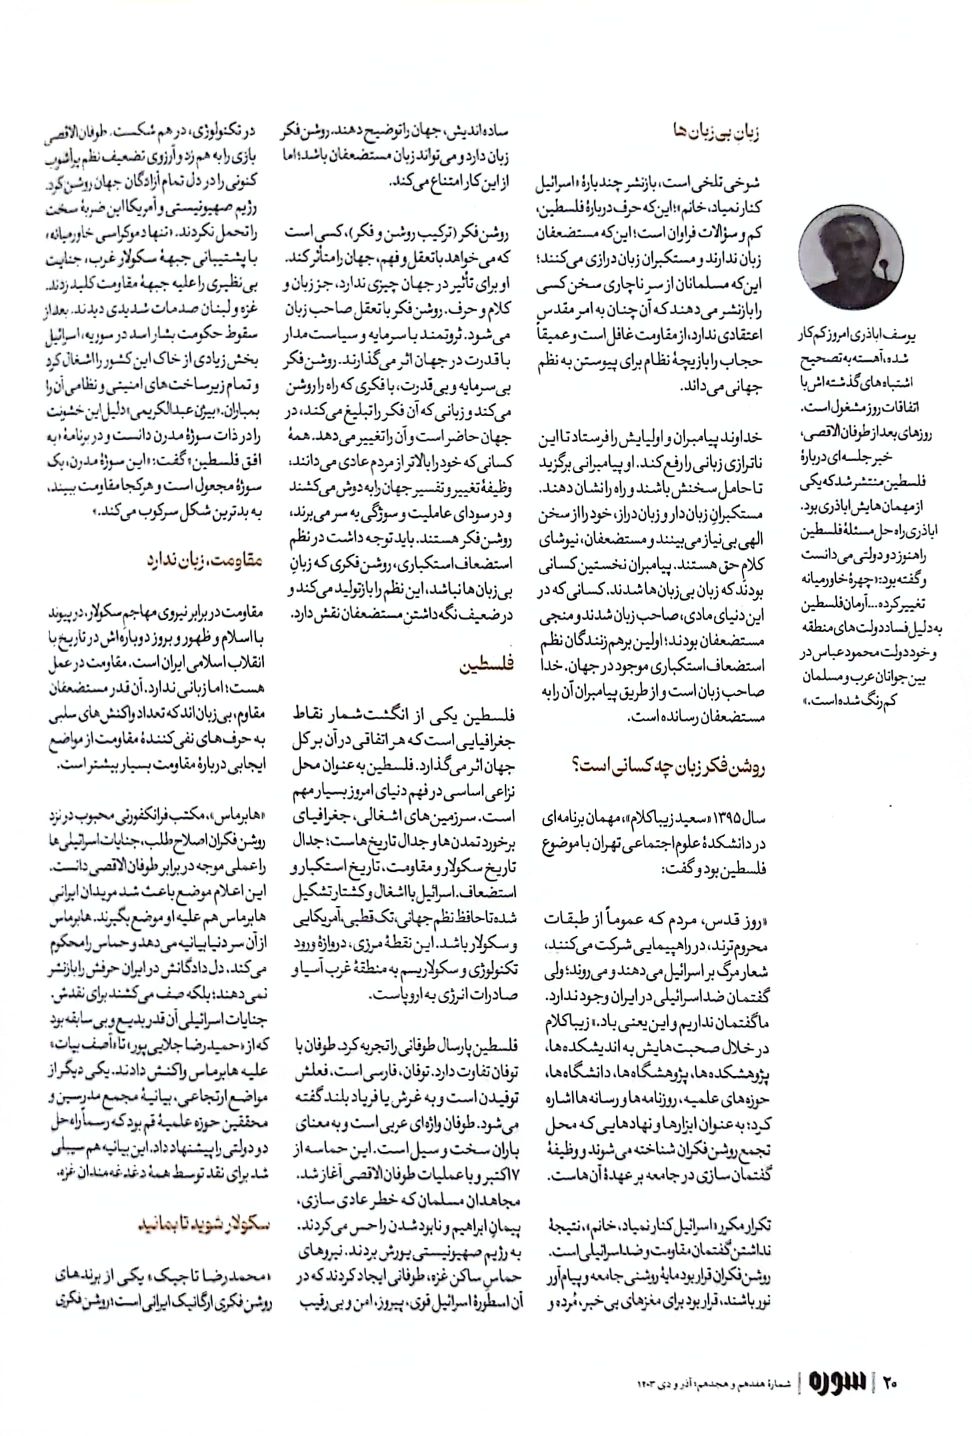 زبانِ بی‌زبان‌ها
شوخی تلخی است، بازنشر چندبارهٔ «اسرائیل
کنار نمیاد، خانم»؛ این‌که حرف دربارهٔ فلسطین،
کم و سؤالات فراوان است؛ این‌که مستضعفان
زبان ندارند و مستکبران زبان درازی می‌کنند؛
این‌که مسلمانان از سر ناچاری سخن کسی
را بازنشر می‌دهند که آن چنان به امر مقدس
اعتقادی ندارد، از مقاومت غافل است و عمیقاً
حجاب را بازیچهٔ نظام برای پیوستن به نظم
جهانی می‌داند.
خداوند پیامبران و اولیایش را فرستاد تا این
ناترازی زبانی را رفع کند. او پیامبرانی برگزید
تا حامل سخنش باشند و راه را نشان دهند.
مستکبرانِ زبان‌دار و زبان‌دراز، خود را از سخن
الهی بی‌نیاز می‌بینند و مستضعفان، نیوشای
کلامِ حق هستند. پیامبران نخستین کسانی
بودند که زبان بی‌زبان‌ها شدند. کسانی که در
این دنیای مادی، صاحب زبان شدند و منجی
مستضعفان بودند؛ اولین برهم‌زنندگان نظم
استضعاف استکباری موجود در جهان. خدا
صاحب زبان است و از طریق پیامبران آن را به
مستضعفان رسانده است.
روشن‌فکر زبان چه کسانی است؟
سال ۱۳۹۵ «سعید زیباکلام»، مهمان برنامه‌ای
در دانشکدهٔ علوم اجتماعی تهران با موضوع
فلسطین بود و گفت:
«روز قدس، مردم که عموماً از طبقات
محروم‌ترند، در راهپیمایی شرکت می‌کنند،
شعار مرگ بر اسرائیل می‌دهند و می‌روند؛ ولی
گفتمان ضداسرائیلی در ایران وجود ندارد.
ما گفتمان نداریم و این یعنی باد.» زیباکلام
در خلال صحبت‌هایش به اندیشکده‌ها،
پژوهشکده‌ها، پژوهشگاه‌ها، دانشگاه‌ها،
حوزه‌های علمیه، روزنامه‌ها و رسانه‌ها اشاره
کرد؛ به‌عنوان ابزارها و نهادهایی که محل
تجمع روشن‌فکران شناخته می‌شوند و وظیفهٔ
گفتمان‌سازی در جامعه بر عهدهٔ آن‌هاست.
تکرار مکرر «اسرائیل کنار نمیاد، خانم»، نتیجهٔ
نداشتن گفتمان مقاومت و ضداسرائیلی است.
روشن‌فکران قرار بود مایهٔ روشنی جامعه و پیام‌آور
نور باشند، قرار بود برای مغزهای بی‌خبر، مُرده و
ساده‌اندیش، جهان را توضیح دهند. روشن‌فکر
زبان دارد و می‌تواند زبان مستضعفان باشد؛ اما
از این کار امتناع می‌کند.
روشن‌فکر (ترکیب روشن و فکر)، کسی است
که می‌خواهد با تعقل و فهم، جهان را متأثر کند.
او برای تأثیر در جهان چیزی ندارد، جز زبان و
کلام و حرف. روشن‌فکر با تعقل صاحب زبان
می‌شود. ثروتمند با سرمایه و سیاست‌مدار
با قدرت در جهان اثر می‌گذارند. روشن‌فکر
بی‌سرمایه و بی‌قدرت، با فکری که راه را روشن
می‌کند و زبانی که آن فکر را تبلیغ می‌کند، در
جهان حاضر است و آن را تغییر می‌دهد. همهٔ
کسانی که خود را بالاتر از مردم عادی می‌دانند،
وظیفهٔ تغییر و تفسیر جهان را به دوش می‌کشند
و در سودای عاملیت و سوژگی به سر می‌برند،
روشن‌فکر هستند. باید توجه داشت در نظم
استضعاف استکباری، روشن‌فکری که زبانِ
بی‌زبان‌ها نباشد، این نظم را بازتولید می‌کند و
در ضعیف نگه داشتن مستضعفان نقش دارد.
فلسطین
فلسطین یکی از انگشت‌شمار نقاط
جغرافیایی است که هر اتفاقی در آن بر کل
جهان اثر می‌گذارد. فلسطین به‌عنوان محل
نزاعی اساسی در فهم دنیای امروز بسیار مهم
است. سرزمین‌های اشغالی، جغرافیای
برخورد تمدن‌ها و جدال تاریخ‌هاست؛ جدال
تاریخ سکولار و مقاومت، تاریخ استکبار و
استضعاف. اسرائیل با اشغال و کشتار تشکیل
شده تا حافظ نظم جهانی، تک‌قطبی، آمریکایی
و سکولار باشد. این نقطهٔ مرزی، دروازهٔ ورود
تکنولوژی و سکولاریسم به منطقهٔ غرب آسیا و
صادرات انرژی به اروپاست.
فلسطین پارسال طوفانی را تجربه کرد. طوفان با
توفان تفاوت دارد. توفان، فارسی است، فعلش
توفیدن است و به غرش یا فریاد بلند گفته
می‌شود. طوفان واژه‌ای عربی است و به معنای
باران سخت و سیل است. این حماسه از
۷ اکتبر و با عملیات طوفان الاقصی آغاز شد.
مجاهدان مسلمان که خطر عادی سازی،
پیمان ابراهیم و نابود شدن را حس می‌کردند.
به رژیم صهیونیستی یورش بردند. نیروهای
حماسِ ساکن غزه، طوفانی ایجاد کردند که در
آن اسطورهٔ اسرائیل قوی، پیروز، امن و بی‌رقیب
در تکنولوژی، در هم شکست. طوفان الاقصی
بازی را به هم زد و آرزوی تضعیف نظم پرآشوب
کنونی را در دل تمام آزادگان جهان روشن کرد.
رژیم صهیونیستی و آمریکا این ضربهٔ سخت
را تحمل نکردند. «تنها دموکراسی خاورمیانه»
با پشتیبانی جبههٔ سکولار غرب، جنایت
بی‌نظیری را علیه جبههٔ مقاومت کلید زدند.
غزه و لبنان صدمات شدیدی دیدند. بعد از
سقوط حکومت بشار اسد در سوریه، اسرائیل
بخش زیادی از خاک این کشور را اشغال کرد
و تمام زیرساخت‌های امنیتی و نظامی آن را
بمباران. «بیژن عبدالکریمی» دلیل این خشونت
را در ذات سوژهٔ مدرن دانست و در برنامهٔ «به
افق فلسطین» گفت: «این سوژهٔ مدرن، یک
سوژهٔ مجعول است و هر کجا مقاومت ببیند،
به بدترین شکل سرکوب می‌کند.»
مقاومت، زبان ندارد
مقاومت در برابر نیروی مهاجم سکولار، در پیوند
با اسلام و ظهور و بروز دوباره‌اش در تاریخ با
انقلاب اسلامی ایران است. مقاومت در عمل
هست؛ اما زبانی ندارد. آن قدر مستضعفان
مقاوم، بی‌زبان‌اند که تعداد واکنش‌های سلبی
به حرف‌های نفی‌کنندهٔ مقاومت از مواضع
ایجابی دربارهٔ مقاومت بسیار بیشتر است.
«هابرماس»، مکتب فرانکفورتی محبوب در نزد
روشن‌فکران اصلاح‌طلب، جنایات اسرائیلی‌ها
را عملی موجه در برابر طوفان الاقصی دانست.
این اعلام موضع باعث شد مریدان ایرانی
هابرماس هم علیه او موضع بگیرند. هابرماس
از آن سر دنیا بیانیه می‌دهد و حماس را محکوم
می‌کند، دل‌دادگانش در ایران حرفش را بازنشر
نمی‌دهند؛ بلکه صف می‌کشند برای نقدش.
جنایات اسرائیلی آن قدر بدیع و بی‌سابقه بود
که از «حمیدرضا جلایی‌پور» تا «آصف بیات»
علیه هابرماس واکنش دادند. یکی دیگر از
مواضع ارتجاعی، بیانیهٔ مجمع مدرسین و
محققین حوزه علمیهٔ قم بود که رسماً راه‌حل
دو دولتی را پیشنهاد داد. این بیانیه هم سیبلی
شد برای نقد توسط همهٔ دغدغه‌مندان غزه.
سکولار شوید تا بمانید
«محمدرضا تاجیک» یکی از برندهای
روشن‌فکری ارگانیک ایرانی است؛ روشن‌فکری
یوسف اباذری امروز کم‌کار
شده، آهسته به تصحیح
اشتباه‌های گذشته‌اش با
اتفاقات روز مشغول است.
روزهای بعد از طوفان الاقصی،
خبر جلسه‌ای دربارهٔ
فلسطین منتشر شد که یکی
از مهمان‌هایش اباذری بود.
اباذری راه‌حل مسئلهٔ فلسطین
را هنوز دو دولتی می‌دانست
و گفته بود: «چهرهٔ خاورمیانه
تغییر کرده... آرمان فلسطین
به دلیل فساد دولت‌های منطقه
و خود دولت محمود عباس در
بین جوانان عرب و مسلمان
کم‌رنگ شده است.»
۲۰ | سوره | شمارهٔ هفدهم و هجدهم؛ آذر و دی ۱۴۰۳